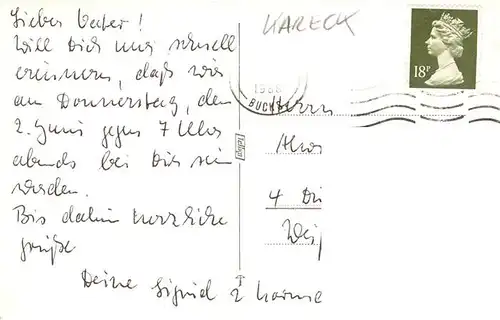 Lieber Vater!
Will Dich nur schnell
erinnern, daß wir
am Donnerstag, den
2. Juni gegen 7 Uhr
abends bei Dir sein
werden.
Bis dahin herzliche
Grüße
Deine Sigrid
KARECK
18P
1988
BUCK
Herrn
4 Dü